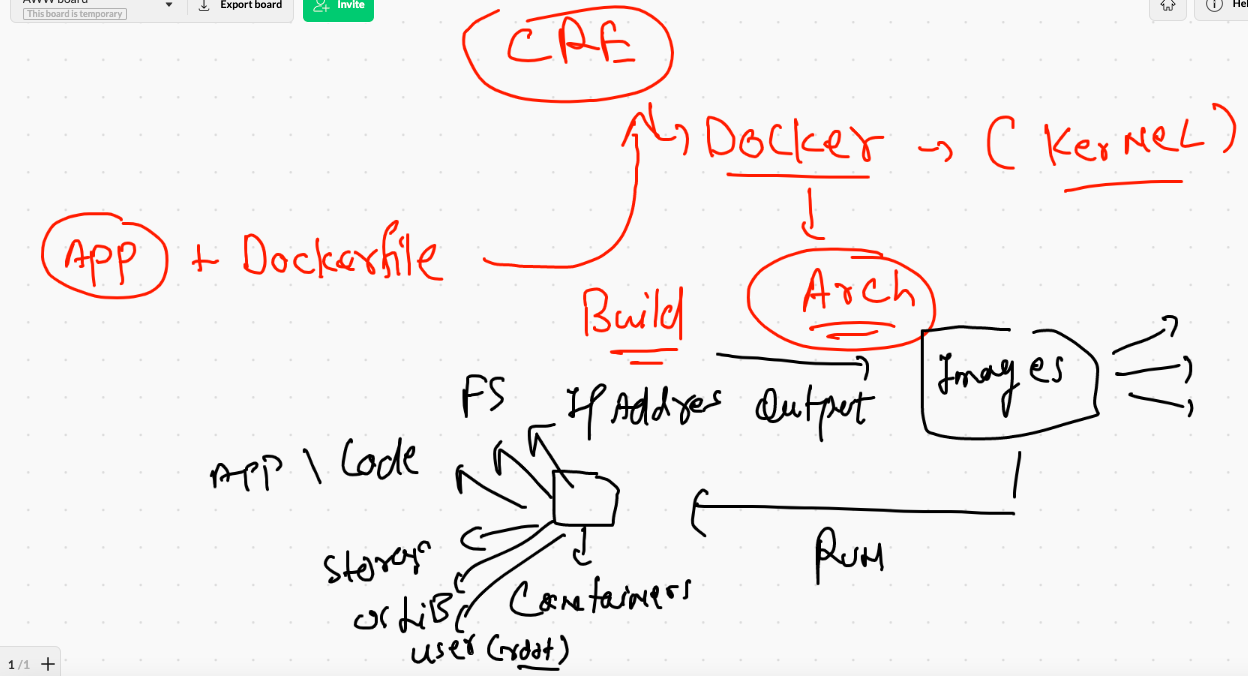 AWW board
This board is temporary
Export board
Invite
Hel
CRE
Docker → (KerNeL)
App + Dockerfile
Arch
Build
Images
FS
IP Addres
Output
App \ Code
Storege
Run
or LiB
Containers
user (root)
1/1 +